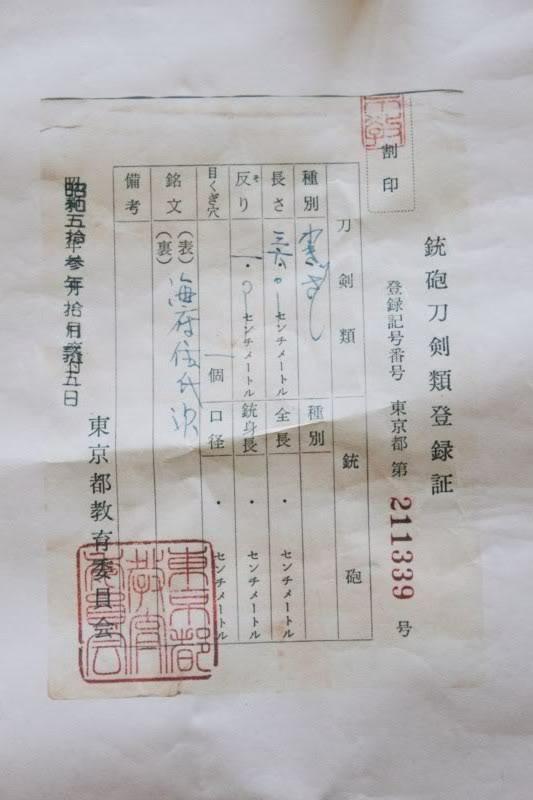 割印
銃砲刀剣類登録証
登録記号番号 東京都 第 211339 号
刀剣類 銃砲
種別 わきざし 種別
長さ センチメートル 全長 ・ センチメートル
反り そ 一・〇 センチメートル 銃身長 ・ センチメートル
目くぎ穴 一個 口径 ・ センチメートル
銘文 (表) 海府住氏次
(裏)
備考
東京都教育委員会
東京都教育委員会